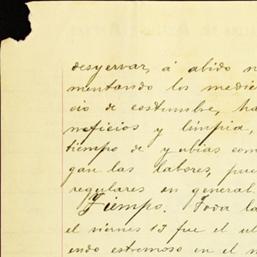 desyervar, á abido n
mentando los medie
cio de costumbre, ha
neficios y limpia,
tiempo de yubias com
gan las labores, pue
regulares en general.
Tiempo. Toda la
el viernes 13 fue el ul
endo estremoso en el n